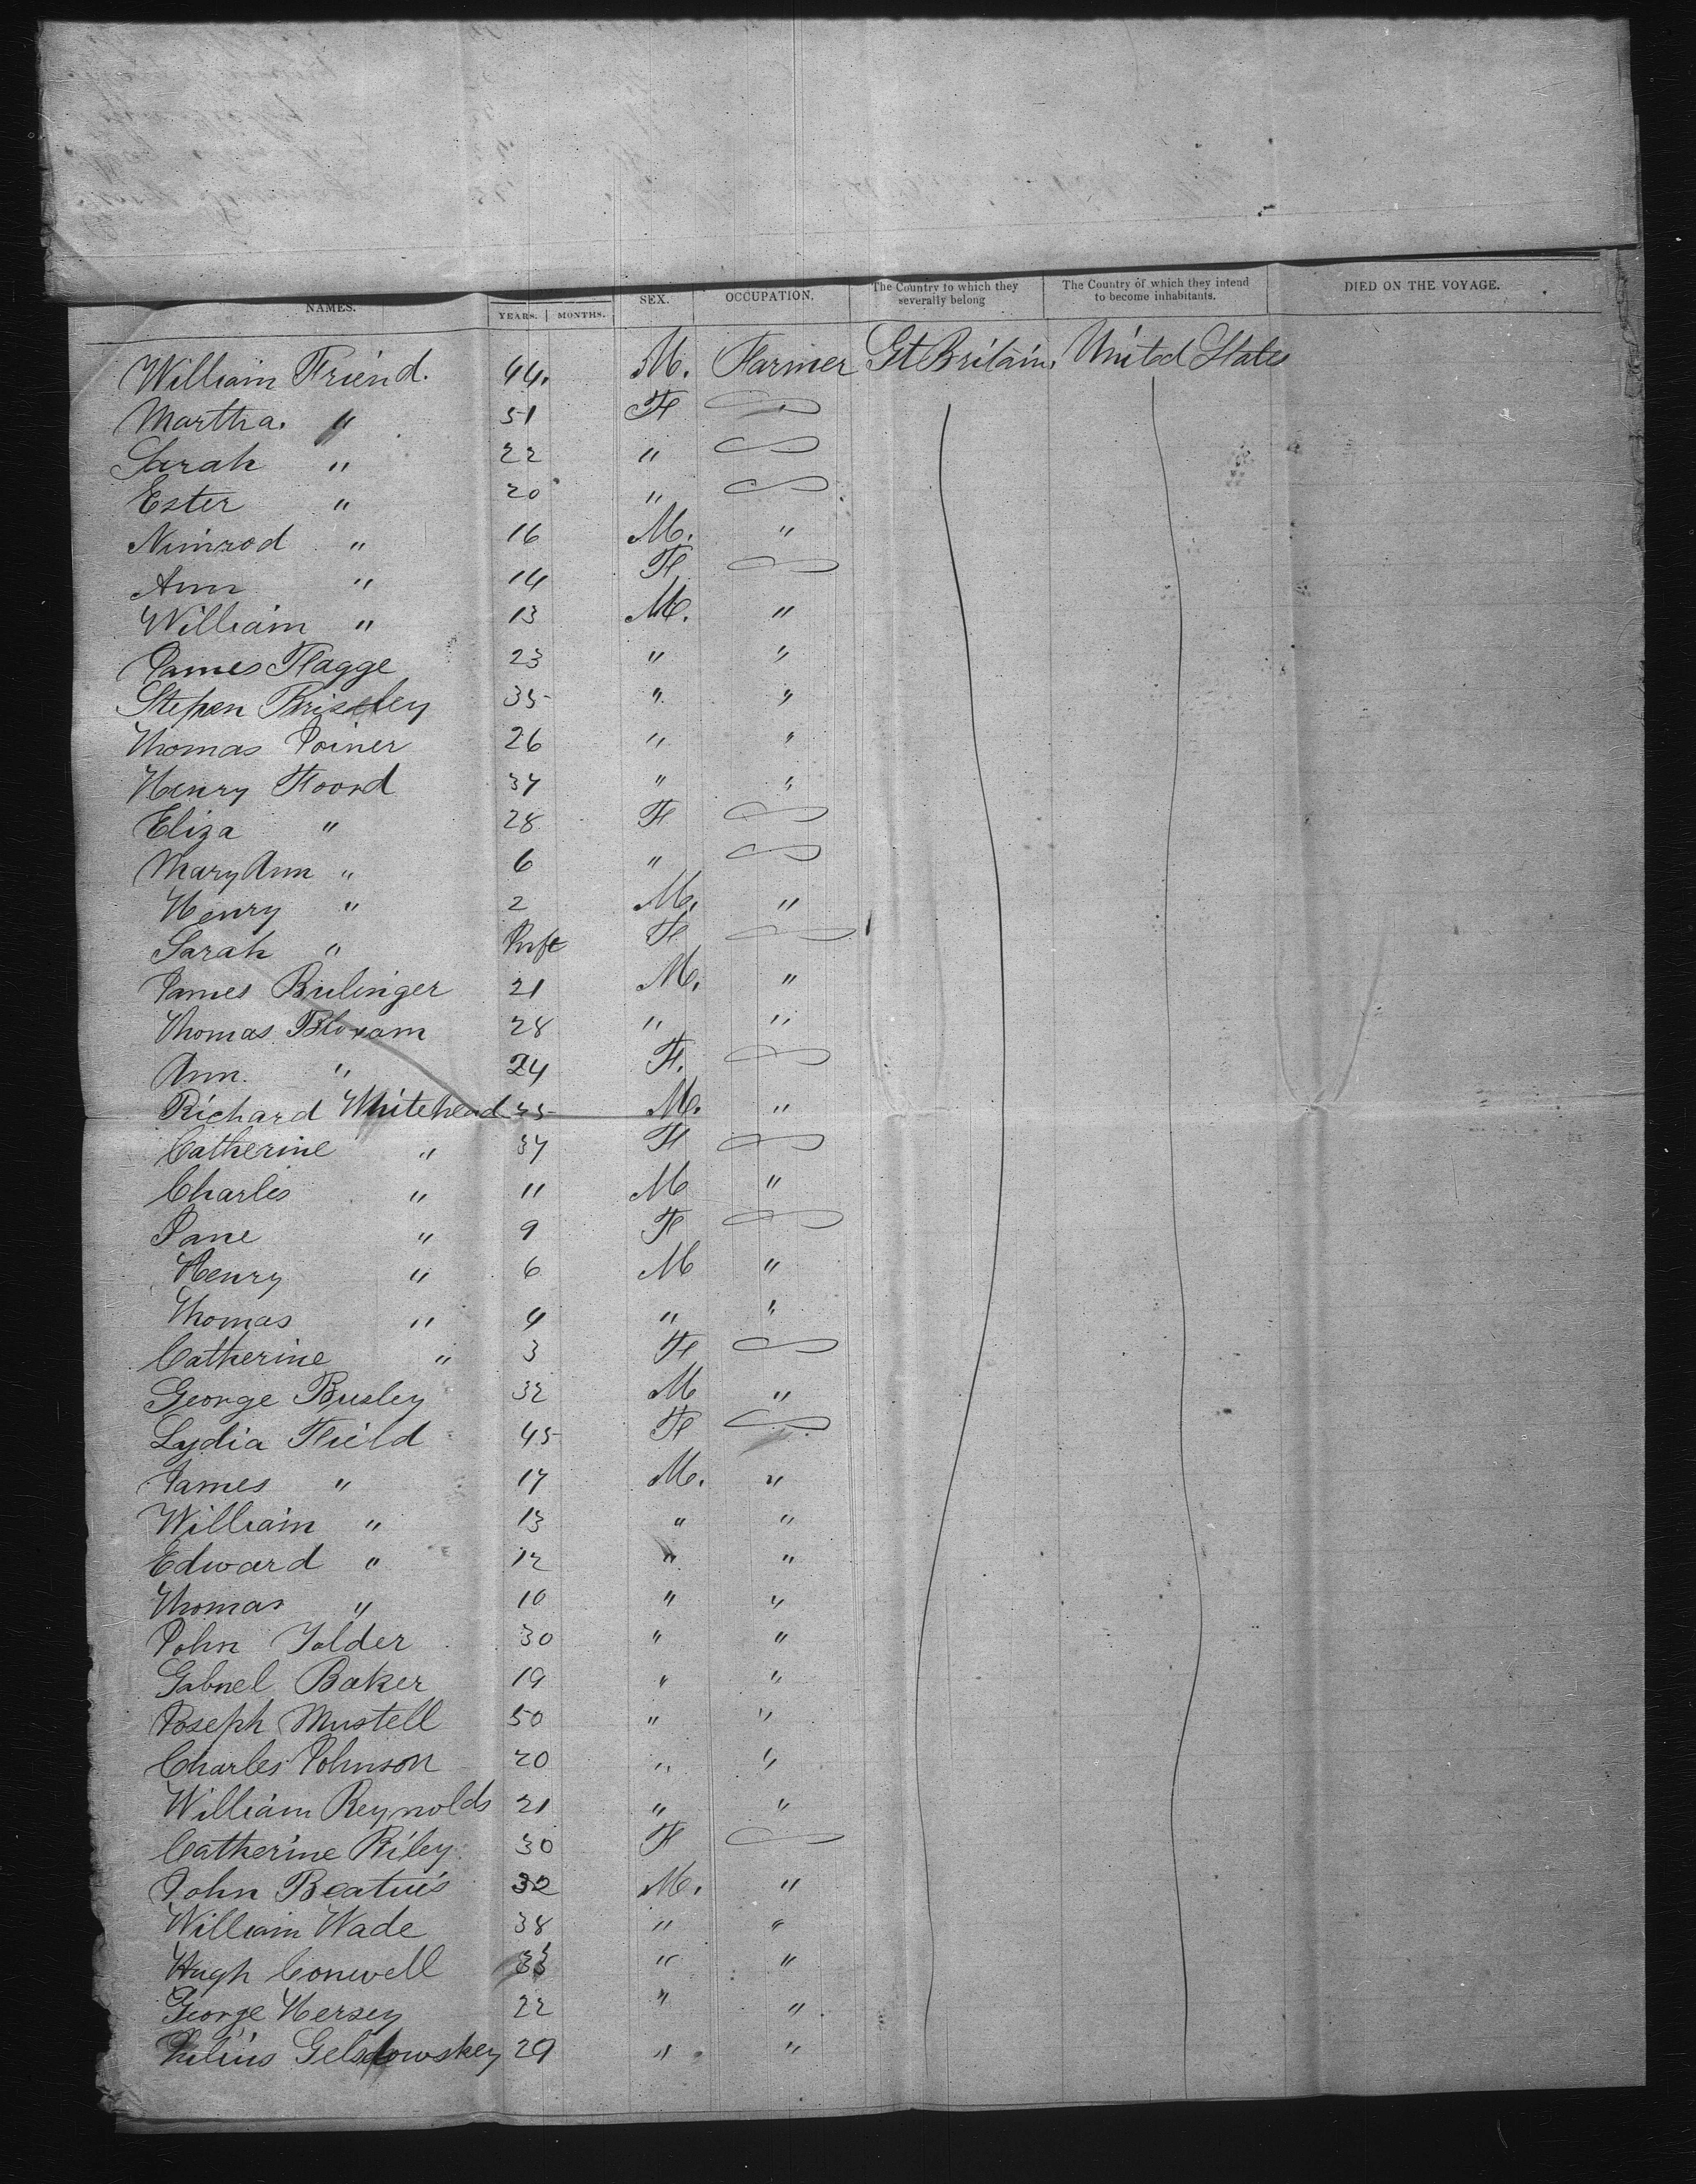 NAMES. YEARS. MONTHS. SEX. OCCUPATION. The Country to which they severally belong The Country of which they intend to become inhabitants. DIED ON THE VOYAGE.
William Friend. 44. M. Farmer Gt Britain. United States
Martha. " 51 F "
Sarah " 22 "
Ester " 20 "
Nimrod " 16 M. "
Ann " 14 F
William " 13 M. "
James Flagge 23 " "
Stepen Brisley 35 " "
Thomas Joiner 26 " "
Henry Foord 37 " "
Eliza " 28 F
Mary Ann " 6 "
Henry " 2 M. "
Sarah " Inft F
James Bulinger 21 M. "
Thomas Bloxam 28 " "
Ann. " 24 F.
Richard Whitehead 45 M. "
Catherine " 37 F
Charles " 11 M "
Jane " 9 F
Henry " 6 M "
Thomas " 4 " "
Catherine " 3 F
George Busley 32 M "
Lydia Field 45 F
James " 17 M. "
William " 13 " "
Edward " 12 " "
Thomas " 10 " "
John Tolder 30 " "
Gabriel Baker 19 " "
Joseph Mustell 50 " "
Charles Johnson 20 " "
William Reynolds 21 " "
Catherine Riley. 30 F
John 32 M. "
William Wade 38 " "
Hugh Conwell 33 " "
George Hersey 22 " "
Julius 29 " "